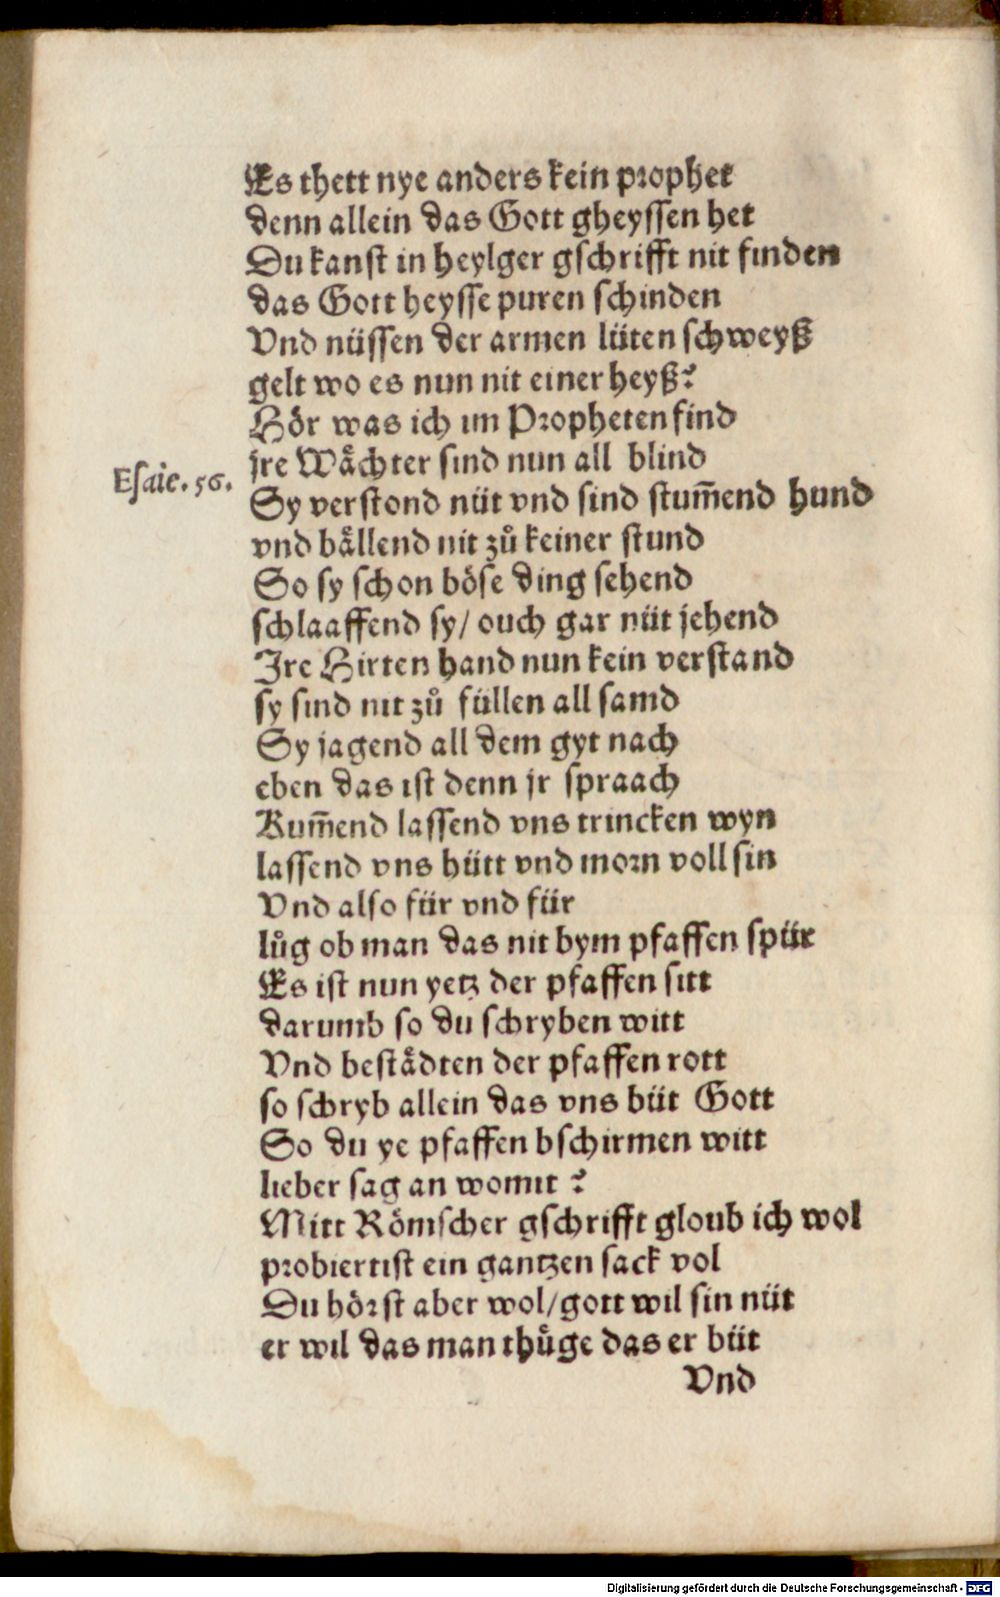 Es thett nye anders kein prophet
denn allein das Gott gheyssen het
Du kanst in heylger gschrifft nit finden
das Gott heysse puren schinden
Vnd nüssen der armen lüten schweyß
gelt wo es nun nit einer heyß?
Hör was ich im Propheten find
jre Wåchter sind nun all blind
Esaie. 56.
Sy verstond nüt vnd sind stum̄end hund
vnd bållend nit zů keiner stund
So sy schon böse ding sehend
schlaaffend sy/ ouch gar nüt jehend
Ire Hirten hand nun kein verstand
sy sind nit zů füllen all samd
Sy jagend all dem gyt nach
eben das ist denn jr spraach
Kum̄end lassend vns trincken wyn
lassend vns hütt vnd morn voll sin
Vnd also für vnd für
lůg ob man das nit bym pfaffen spür
Es ist nun yetz der pfaffen sitt
darumb so du schryben witt
Vnd bestådten der pfaffen rott
so schryb allein das vns büt Gott
So du ye pfaffen bschirmen witt
lieber sag an womit ?
Mitt Römscher gschrifft gloub ich wol
probiertist ein gantzen sack vol
Du hörst aber wol/gott wil sin nüt
er wil das man thůge das er büt
Vnd
Digitalisierung gefördert durch die Deutsche Forschungsgemeinschaft - DFG